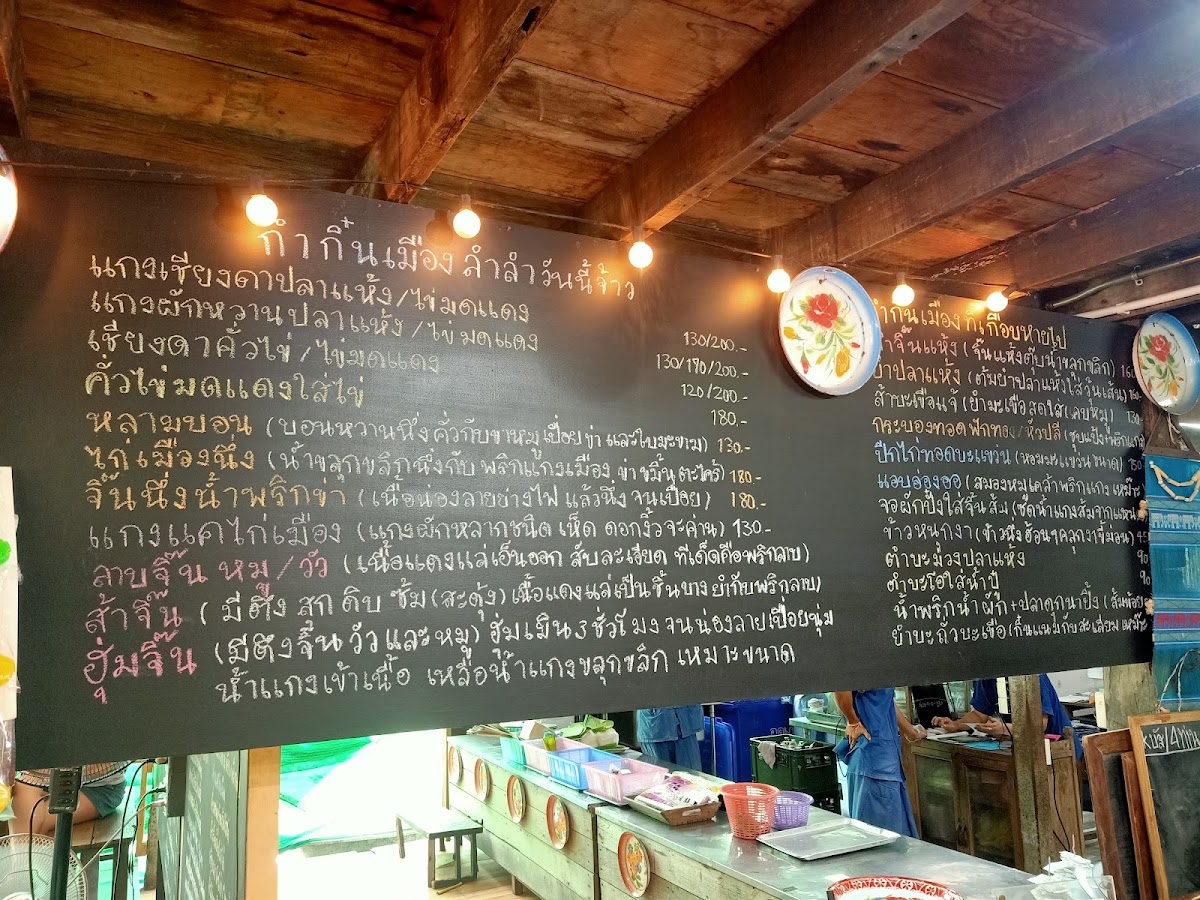 กำกิ๋นเมือง ลำลำวันนี้จ้าว
แกงเชียงดาปลาแห้ง/ไข่มดแดง
แกงผักหวานปลาแห้ง/ไข่มดแดง 130/200.-
เชียงดาคั่วไข่/ไข่มดแดง 130/190/200.-
คั่วไข่มดแดงใส่ไข่ 120/200.-
180.-
หลามบอน (บอนหวานนึ่งคั่วกับขาหมูเปื่อย ข่า และใบมะขาม) 130.-
ไก่เมืองนึ่ง (น้ำขลุกขลิกนึ่งกับ พริกแกงเมือง ข่า ขมิ้น ตะไคร้) 180.-
จิ๊นนึ่งน้ำพริกข่า (เนื้อน่องลายย่างไฟ แล้วนึ่ง จนเปื่อย) 180.-
แกงแคไก่เมือง (แกงผักหลากชนิด เห็ด ดอกงิ้ว จะค่าน) 130.-
ลาบจิ๊น หมู/วัว (เนื้อแดงแล่เอ็นออก สับละเอียด ทีเด็ดคือพริกลาบ)
ส้าจิ๊น (มีตึง สุก ดิบ ซั้ม (สะดุ้ง) เนื้อแดงแล่เป็นชิ้นบาง ยำกับพริกลาบ)
ฮุ่มจิ๊น (มีตึงจิ๊นวัว และหมู) ฮุ่มเมิน 3 ชั่วโมง จนน่องลายเปื่อยนุ่ม
น้ำแกงเข้าเนื้อ เหลือน้ำแกงขลุกขลิก เหมาะขนาด
กำกิ๋นเมืองที่เกือบหายไป
ยำจิ๊นแห้ง (จิ๊นแห้งตุ๊บน้ำขลุกขลิก)
ยำปลาแห้ง (ต้มยำปลาแห้งใส่วุ้นเส้น)
ส้าบะเขือแจ้ (ยำมะเขือสดใส่แคบหมู) 130
กระบองทอดฟักทอง/หัวปลี (ชุบแป้ง+พริกแกง
ปีกไก่ทอดบะแขว่น (หอมมะแขว่นขนาด) 150
แอบอ่องออ (สมองหมูเคล้าพริกแกง เหม๊าะ
จอผักปั๋งใส่จิ๊นส้ม
ข้าวหนุกงา (ข้าวนึ่งฮ้อนๆคลุกงาขี้ม้อน) 45
ตำบะม่วงปลาแห้ง 90
ตำบะโอใส่น้ำปู๋ 90
น้ำพริกน้ำผัก+ปลาดุกนาปิ้ง
ยำบะถั่วบะเขือ (กิ๋นแนมกับสะเลียม เหม๊าะ